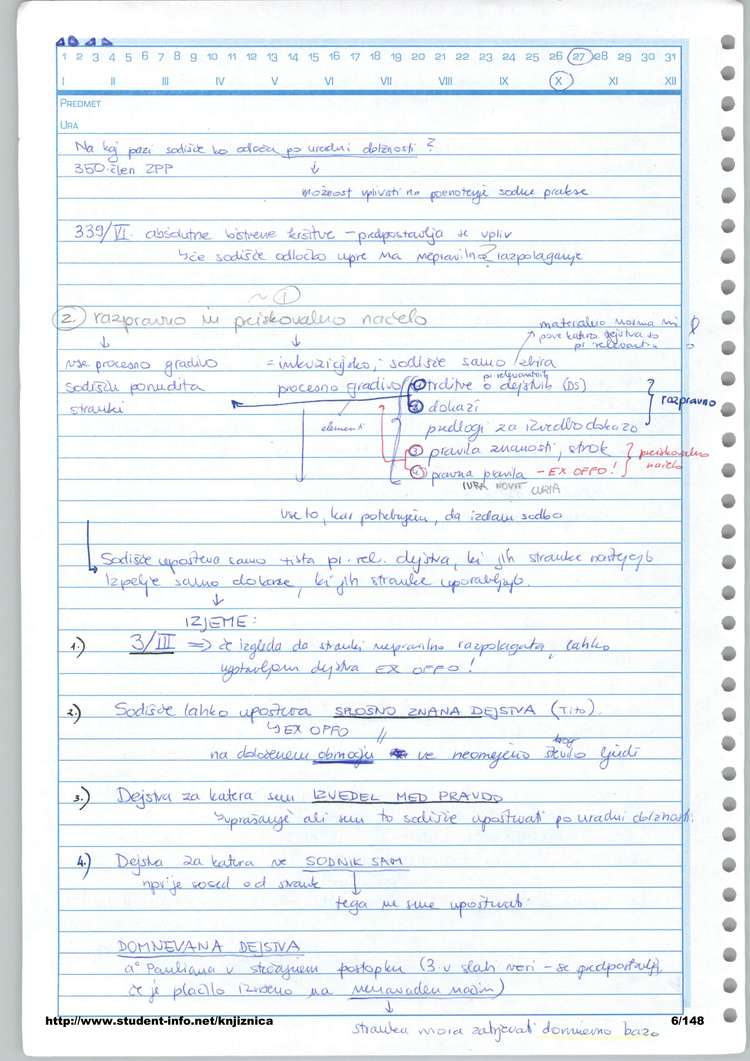 1 2 3 4 5 6 7 8 9 10 11 12 13 14 15 16 17 18 19 20 21 22 23 24 25 26 27 28 29 30 31
I II III IV V VI VII VIII IX X XI XII
PREDMET
URA
Na kaj pazi sodišče ko odloča po uradni dolžnosti?
350. člen ZPP
možnost vplivati na poenotenje sodne prakse
339/VI. absolutne bistvene kršitve – predpostavlja se vpliv
če sodišče odločbo upre na nepravilno? razpolaganje
~ 1
2. razpravno in preiskovalno načelo
materialno norma mi
pove katera dejstva so
pr. relevantna
vse procesno gradivo = inkvizicijsko; sodišče samo zbira
sodišču ponudita procesno gradivo 1 trditve o pr. relevantnih dejstvih (DS)
stranki 2 dokazi
razpravno
elementi predlogi za izvedbo dokazov
3 pravila znanosti, strok
preiskovalno načelo
4 pravna pravila – EX OFFO!
IURA NOVIT CURIA
vse to, kar potrebujem, da izdam sodbo
Sodišče upošteva samo tista pr. rel. dejstva, ki jih stranke navajajo
Izpelje samo dokaze, ki jih stranke uporabljajo.
IZJEME:
1.) 3/III => če izgleda da stranki nepravilno razpolagata, lahko
ugotavljam dejstva EX OFFO!
2.) Sodišče lahko upošteva SPLOŠNO ZNANA DEJSTVA (Tito).
EX OFFO
na določenem območju ve neomejeno število ljudi
krog
3.) Dejstva za katera sem IZVEDEL MED PRAVDO
vprašanje ali sem to sodišče upoštevati po uradni dolžnosti.
4.) Dejstva za katera ve SODNIK SAM
npr. je sosed od stranke
tega ne sme upoštevati
DOMNEVANA DEJSTVA
a° Pauliana v stečajnem postopku (3. v slabi veri – se predpostavlja,
če je plačilo izvršeno na nenavaden način)
stranka mora zatrjevati domnevno bazo
http://www.student-info.net/knjiznica
6/148